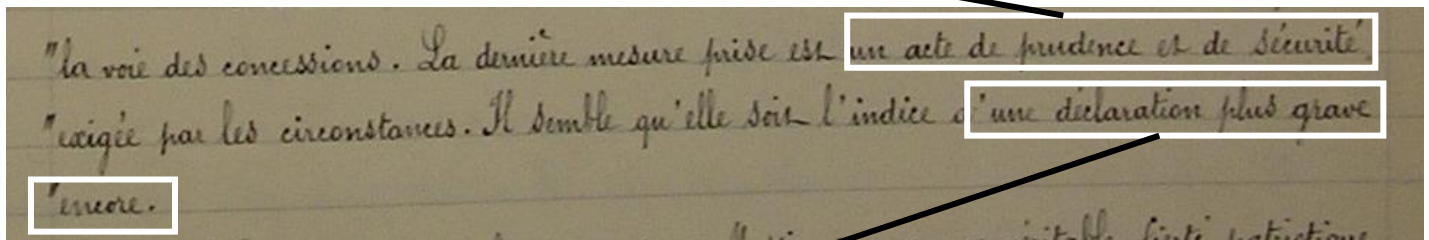 "la voie des concessions. La dernière mesure prise est un acte de prudence et de sécurité,
"exigée par les circonstances. Il semble qu'elle soit l'indice d'une déclaration plus grave
"encore.